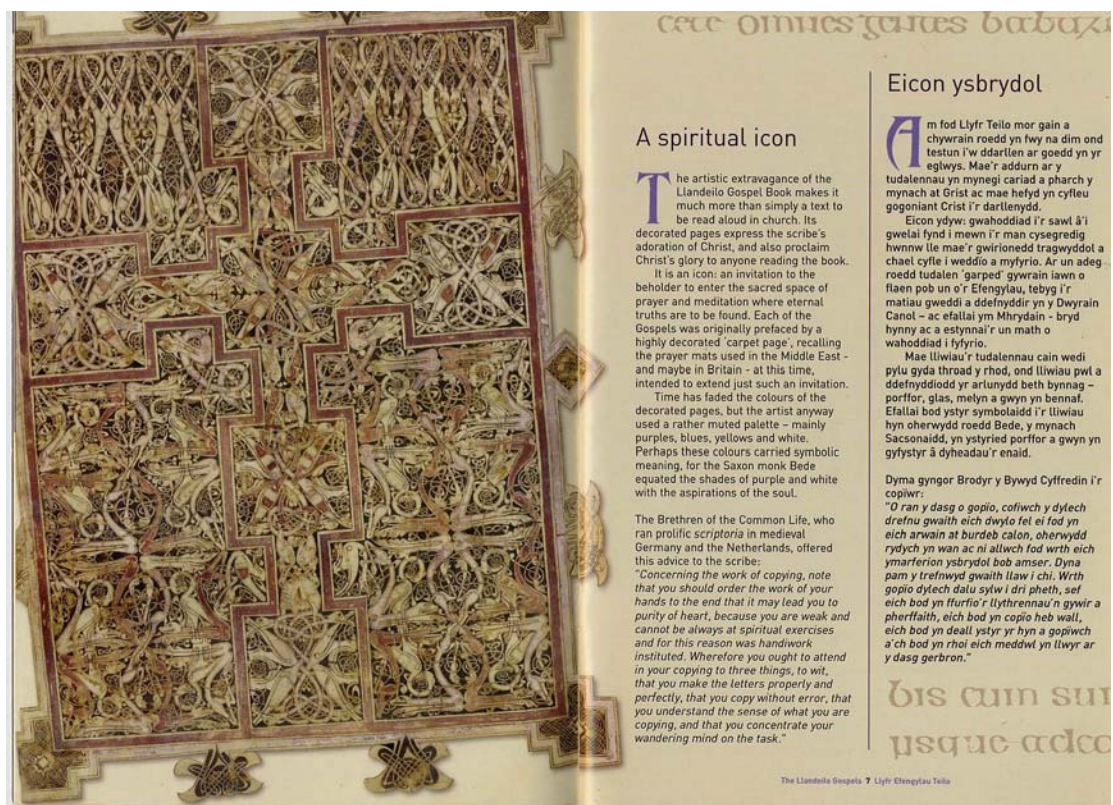 cete omnes gentes
A spiritual icon
The artistic extravagance of the
Llandeilo Gospel Book makes it
much more than simply a text to
be read aloud in church. Its
decorated pages express the scribe's
adoration of Christ, and also proclaim
Christ's glory to anyone reading the book.
It is an icon: an invitation to the
beholder to enter the sacred space of
prayer and meditation where eternal
truths are to be found. Each of the
Gospels was originally prefaced by a
highly decorated 'carpet page', recalling
the prayer mats used in the Middle East -
and maybe in Britain - at this time,
intended to extend just such an invitation.
Time has faded the colours of the
decorated pages, but the artist anyway
used a rather muted palette – mainly
purples, blues, yellows and white.
Perhaps these colours carried symbolic
meaning, for the Saxon monk Bede
equated the shades of purple and white
with the aspirations of the soul.
The Brethren of the Common Life, who
ran prolific scriptoria in medieval
Germany and the Netherlands, offered
this advice to the scribe:
"Concerning the work of copying, note
that you should order the work of your
hands to the end that it may lead you to
purity of heart, because you are weak and
cannot be always at spiritual exercises
and for this reason was handiwork
instituted. Wherefore you ought to attend
in your copying to three things, to wit,
that you make the letters properly and
perfectly, that you copy without error, that
you understand the sense of what you are
copying, and that you concentrate your
wandering mind on the task."
Eicon ysbrydol
Am fod Llyfr Teilo mor gain a
chywrain roedd yn fwy na dim ond
testun i'w ddarllen ar goedd yn yr
eglwys. Mae'r addurn ar y
tudalennau yn mynegi cariad a pharch y
mynach at Grist ac mae hefyd yn cyfleu
gogoniant Crist i'r darllenydd.
Eicon ydyw: gwahoddiad i'r sawl â'i
gwelai fynd i mewn i'r man cysegredig
hwnnw lle mae'r gwirionedd tragwyddol a
chael cyfle i weddïo a myfyrio. Ar un adeg
roedd tudalen 'garped' gywrain iawn o
flaen pob un o'r Efengylau, tebyg i'r
matiau gweddi a ddefnyddir yn y Dwyrain
Canol – ac efallai ym Mhrydain - bryd
hynny ac a estynnai'r un math o
wahoddiad i fyfyrio.
Mae lliwiau'r tudalennau cain wedi
pylu gyda throad y rhod, ond lliwiau pwl a
ddefnyddiodd yr arlunydd beth bynnag –
porffor, glas, melyn a gwyn yn bennaf.
Efallai bod ystyr symbolaidd i'r lliwiau
hyn oherwydd roedd Bede, y mynach
Sacsonaidd, yn ystyried porffor a gwyn yn
gyfystyr â dyheadau'r enaid.
Dyma gyngor Brodyr y Bywyd Cyffredin i'r
copïwr:
"O ran y dasg o gopïo, cofiwch y dylech
drefnu gwaith eich dwylo fel ei fod yn
eich arwain at burdeb calon, oherwydd
rydych yn wan ac ni allwch fod wrth eich
ymarferion ysbrydol bob amser. Dyna
pam y trefnwyd gwaith llaw i chi. Wrth
gopïo dylech dalu sylw i dri pheth, sef
eich bod yn ffurfio'r llythrennau'n gywir a
pherffaith, eich bod yn copïo heb wall,
eich bod yn deall ystyr yr hyn a gopïwch
a'ch bod yn rhoi eich meddwl yn llwyr ar
y dasg gerbron."
bis cum sui
usque adeo
The Llandeilo Gospels 7 Llyfr Efengylau Teilo